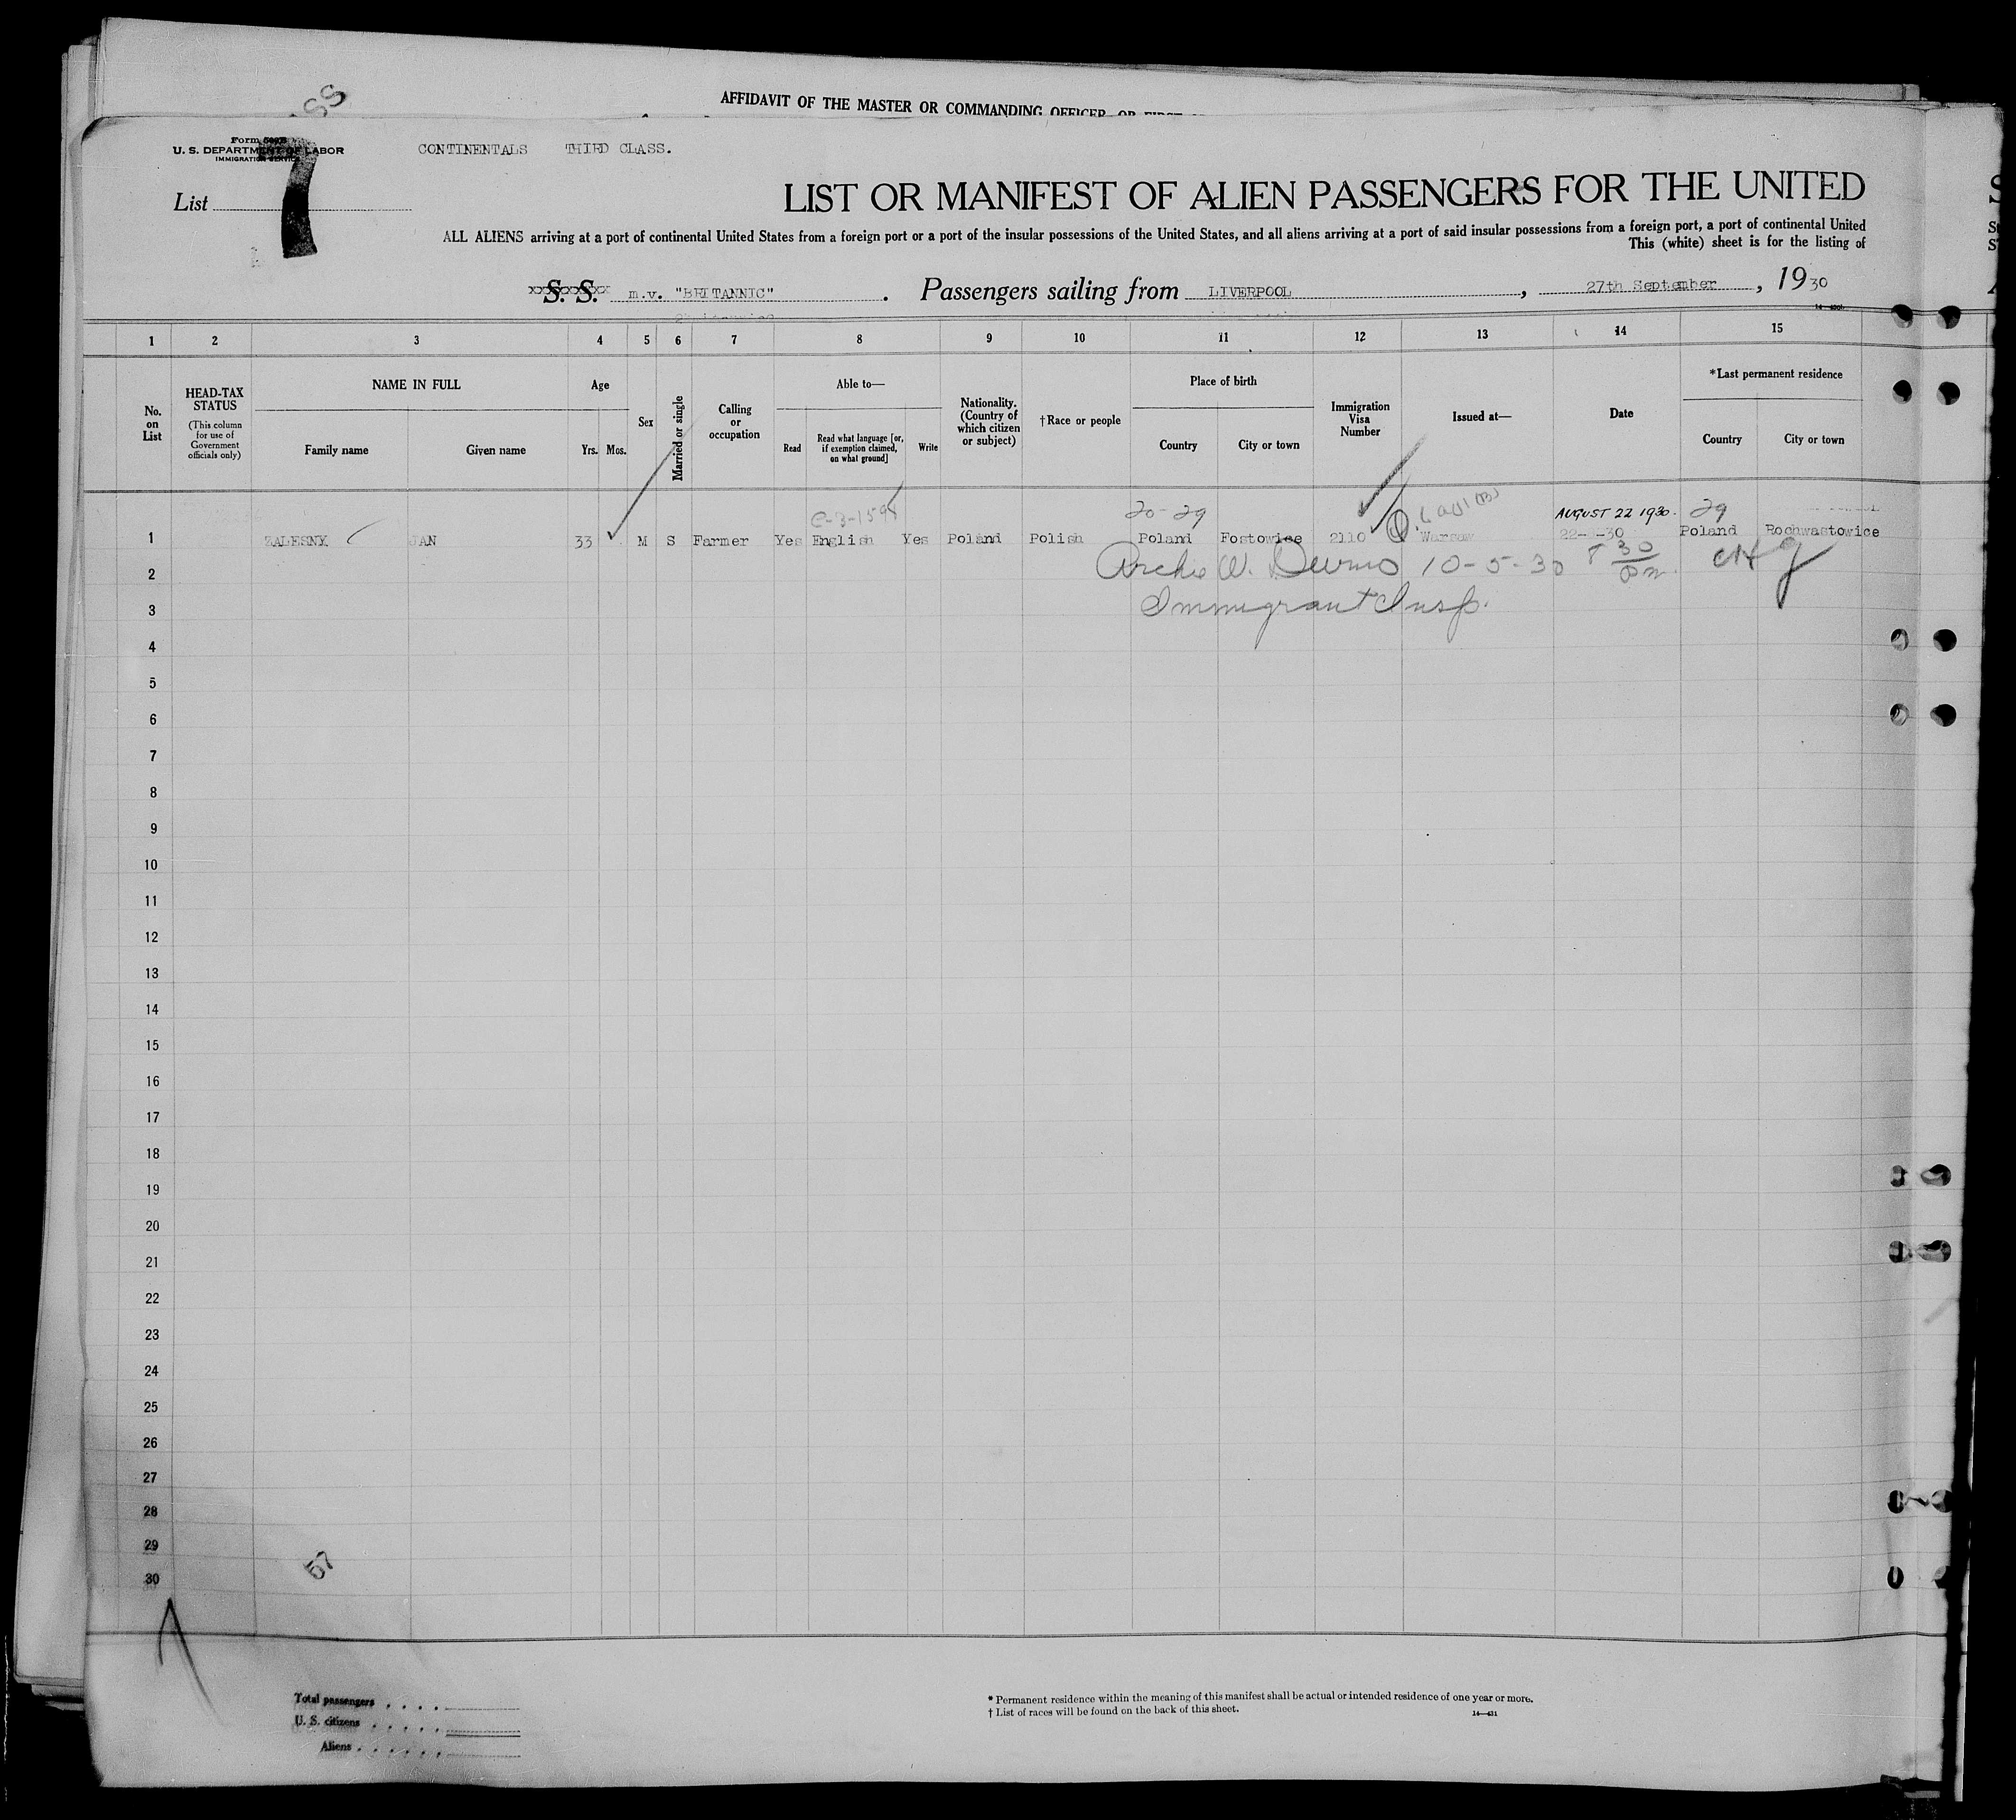 SS
AFFIDAVIT OF THE MASTER OR COMMANDING OFFICER, OR FIRST
Form
U. S. DEPARTMENT OF LABOR
IMMIGRATION SERVICE
CONTINENTALS THIRD CLASS.
List 7
LIST OR MANIFEST OF ALIEN PASSENGERS FOR THE UNITED
ALL ALIENS arriving at a port of continental United States from a foreign port or a port of the insular possessions of the United States, and all aliens arriving at a port of said insular possessions from a foreign port, a port of continental United
This (white) sheet is for the listing of
S. S. m.v. "BRITANNIC". Passengers sailing from LIVERPOOL, 27th September, 1930
1 2 3 4 5 6 7 8 9 10 11 12 13 14 15
No. on List
HEAD-TAX STATUS
(This column for use of Government officials only)
NAME IN FULL
Family name Given name
Age
Yrs. Mos.
Sex
Married or single
Calling or occupation
Able to—
Read Read what language [or, if exemption claimed, on what ground] Write
Nationality. (Country of which citizen or subject)
†Race or people
Place of birth
Country City or town
Immigration Visa Number
Issued at—
Date
*Last permanent residence
Country City or town
20-29 AUGUST 22 1930. 29
1 ZALESNY JAN 33 M S Farmer Yes English Yes Poland Polish Poland Fostowice 2110 Warsaw 22- -30 Poland Rochwastowice
2 Archie W. 10-5-30 8 30 pm
3 Immigrant Insp.
4
5
6
7
8
9
10
11
12
13
14
15
16
17
18
19
20
21
22
23
24
25
26
27
28
29
30
57
Total passengers
U. S. citizens
Aliens
* Permanent residence within the meaning of this manifest shall be actual or intended residence of one year or more.
† List of races will be found on the back of this sheet.
14—431